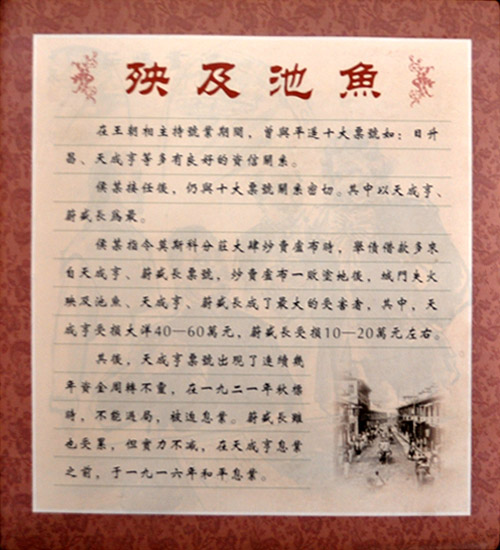 殃及池魚
在王朝相主持號業期間，曾與平遥十大票號如：日升
昌、天成亨等多有良好的資信關系。
侯某接任後，仍與十大票號關系密切。其中以天成亨、
蔚盛長爲最。
侯某指令莫斯科分莊大肆炒賣盧布時，舉債借款多來
自天成亨、蔚盛長票號，炒賣盧布一敗塗地後，城門失火
殃及池魚、天成亨、蔚盛長成了最大的受害者，其中，天
成亨受損大洋40—60萬元，蔚盛長受損10—20萬元左右。
其後，天成亨票號出現了連續幾
年資金周轉不靈，在一九二一年秋標
時，不能過局，被迫息業。蔚盛長雖
也受累，但實力不减，在天成亨息業
之前，于一九一六年和平息業。